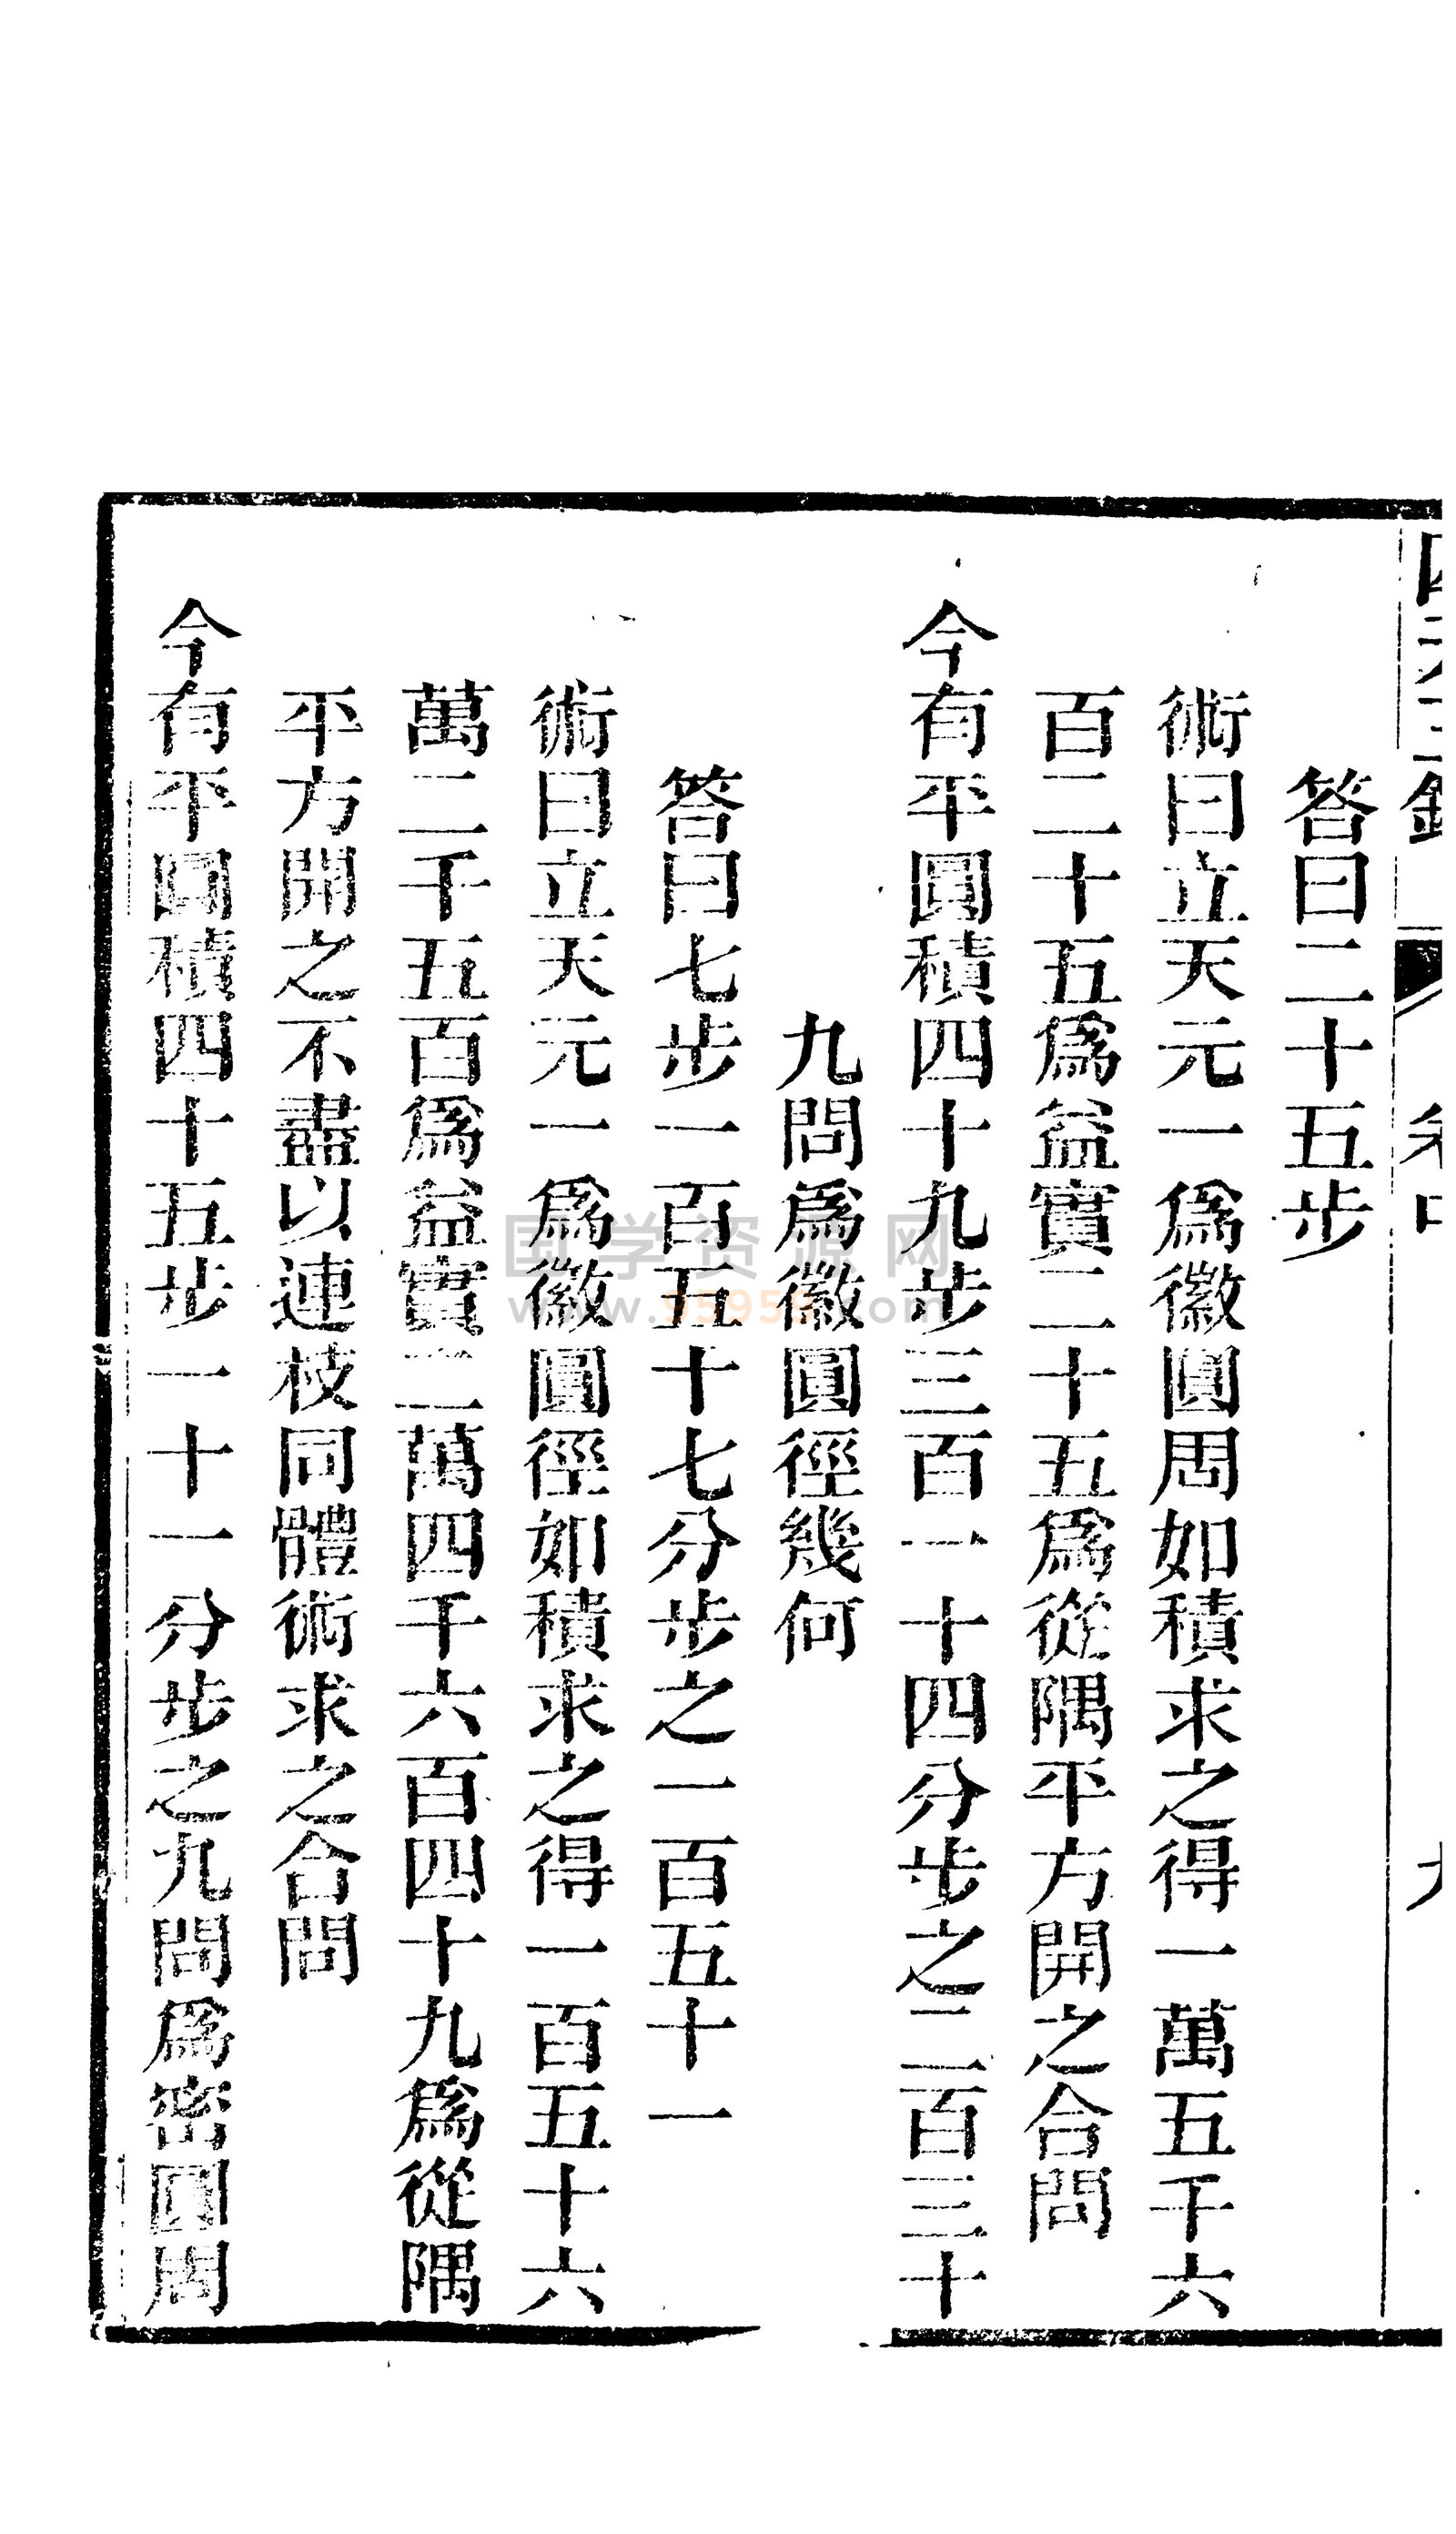 答曰二十五步
術曰立天元一爲徽圓周如積求之得一萬五千六
百二十五爲益實二十五爲從隅平方開之合問
今有平圓積四十九步三百一十四分步之二百三十
九問爲徽圓徑幾何
答曰七步一百五十七分步之一百五十一
術曰立天元一爲徽圓徑如積求之得一百五十六
萬二千五百爲益實二萬四千六百四十九爲從隅
平方開之不盡以連枝同體術求之合問
今有平圓積四十五步一十一分步之九問爲密圓周
国学资源网
www.95959.com